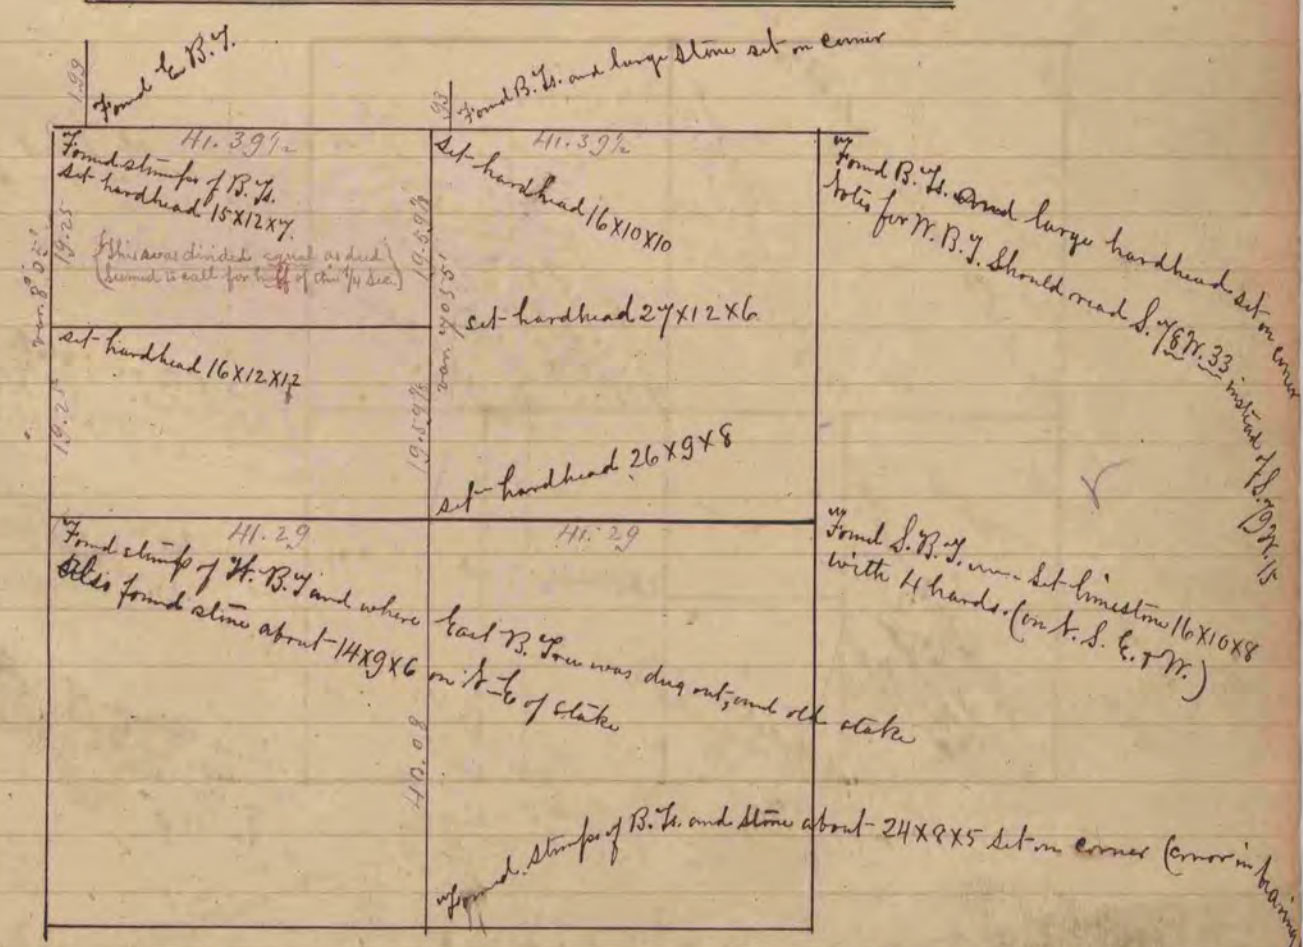 1.99
Found E B.T.
93
Found B.Ts. and large stone set on corner
41.39½
41.39½
Found stumps of B.Ts.
set hardhead 15X12X7
19.25
van 8°05'
(This was divided equal as deed
seemed to call for half of this ¼ Sec.)
set hardhead 16X12X12
19.25
19.59½
van 7°055'
19.59½
set hardhead 16X10X10
set hardhead 27X12X6
set hardhead 26X9X8
Found B.Ts. and large hardhead set on corner
Notes for W.B.T. Should read S.78W.33 instead of S.79W.15
41.29
41.29
Found stump of W.B.T and where East B. Tree was dug out, and old stake
Also found stone about 14X9X6 on N-E of stake
Found S.B.T. Set limestone 16X10X8
with 4 hards. (on N. S. E. & W.)
40.08
Found stumps of B.Ts. and stone about 24X8X5 set on corner (error in